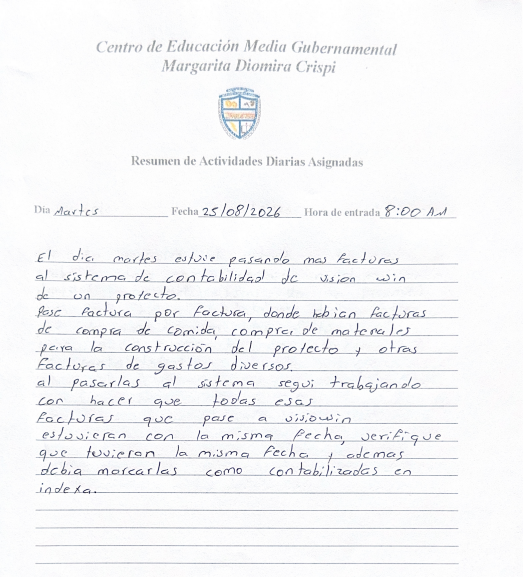 Centro de Educación Media Gubernamental
Margarita Diomira Crispi
Resumen de Actividades Diarias Asignadas
Día Martes Fecha 25/08/2026 Hora de entrada 8:00 AM
El dia martes estuve pasando mas facturas
al sistema de contabilidad de vision win
de un protecto.
Pase factura por factura, donde habian facturas
de compra de comida, compra de materiales
para la construcción del protecto y otras
facturas de gastos diversos.
al pasarlas al sistema segui trabajando
con hacer que todas esas
facturas que pase a visiowin
estuvieran con la misma fecha, verifique
que tuvieran la misma fecha y ademas
debia marcarlas como contabilizadas en
indexa.